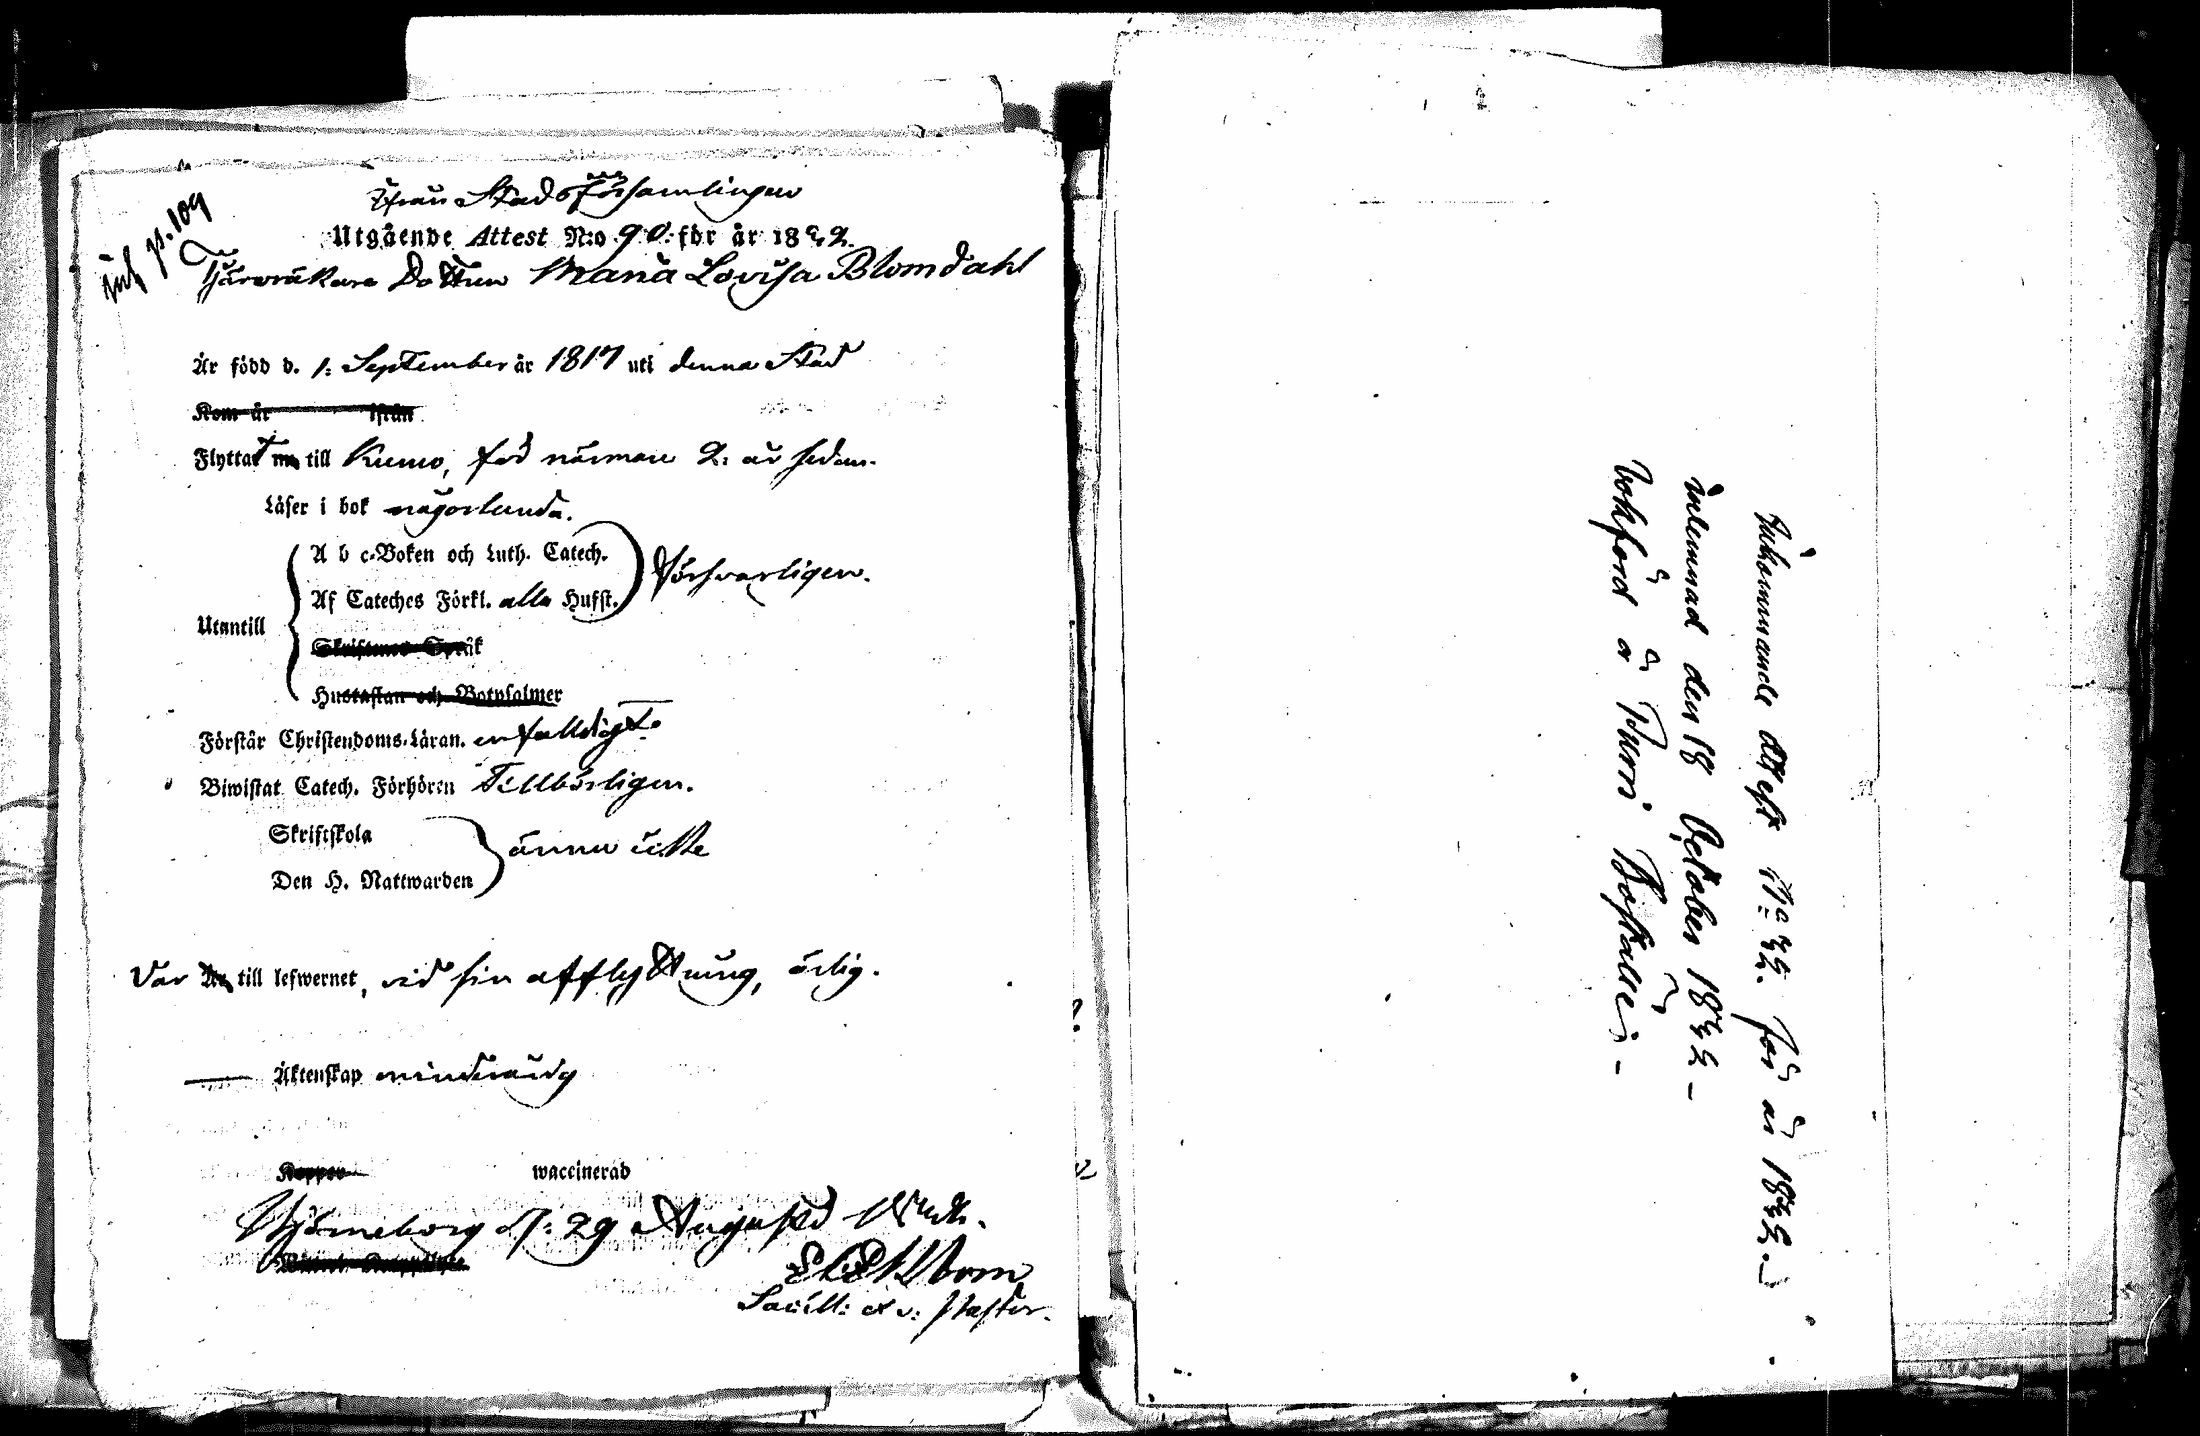 inf p. 109
Från Stadsförsamlingen
Utgående Attest N:o 90. för år 1832.
Tjärwräkare Dottren Maria Lovisa Blomdahl
Är född d. 1: September år 1817 uti denna Stad
Kom år ifrån
Flyttat till Kumo, för närmare 2: år sedan.
Läser i bok någorlunda.
A b c-Boken och Luth. Catech.
Försvarligen.
Af Cateches Förkl. alla Hufst.
Utantill
Skriftenes Språk
Hustaflan och Botpsalmer
Förstår Christendoms-Läran. enfalldigt.
Biwistat Catech. Förhören Tillbörligen.
Skriftskola
ännu icke
Den H. Nattwarden
Var till lefwernet, vid sin afflyttning, ärlig.
Äktenskap minderårig
Koppor waccinerad
Björneborg d: 29 Augusti
Pastor.
Inkommande Attest No 32. för år 1832.
inlemnad den 18 October 1832 –
bokförd å Purri Boställe –